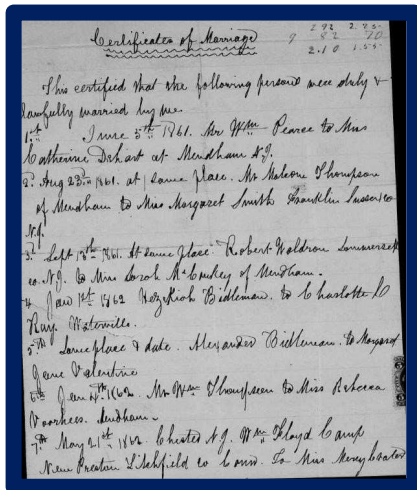 Certificates of Marriage
2 92 2.25
9 82 70
2.10 1.55
This certified that the following persons were duly &
lawfully married by me.
1st June 5th 1861. Mr Wm Pearce to Miss
Catherine Dehart at Mendham N.J.
2. Aug 23rd 1861. at same place. Mr Malcom Thompson
of Mendham to Miss Margaret Smith Franklin Sussex co
N.J.
3d Sept 18th 1861. At same place. Robert Waldron Sommerset
co. N.J. to Miss Sarah McCuskey of Mendham.
4 Jan 1st 1862 Hezekiah Bidleman. to Charlotte
Ray. Waterville.
5th Same place & date. Alexander Bidleman. to Margaret
Jane Valentine
6th Jan 4th 1862. Mr Wm Thompson to Miss Rebecca
Voorhees. Mendham.
7th May 21st 1862. Chester N.J. Wm Floyd Camp
New Preston Litchfield co Conn. To Miss Mercy